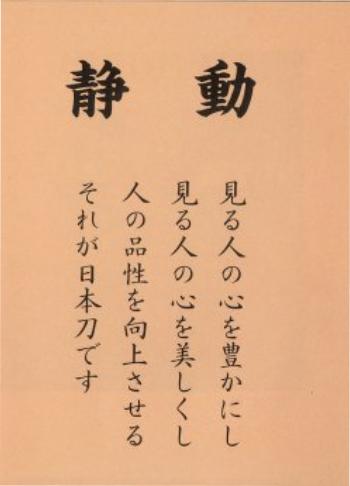 動 静
見る人の心を豊かにし
見る人の心を美しくし
人の品性を向上させる
それが日本刀です